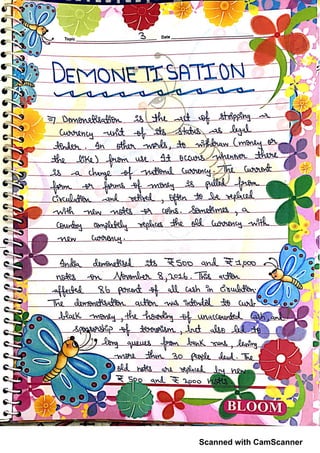 Topic 3 Date
DEMONETISATION
⇒ Demonetisation is the act of stripping a
currency unit of its status as legal
tender. In other words, to withdraw (money or
the like) from use. It occurs whenever there
is a change of national currency. The current
form or forms of money is pulled from
circulation and retired, often to be replaced
with new notes or coins. Sometimes, a
country completely replaces the old currency with
new currency.
India demonetised its ₹500 and ₹1,000
notes on November 8, 2016. This action
affected 86 percent of all cash in circulation.
The demonetisation action was intended to curb
black money, the hoarding of unaccounted cash, and
sponsorship of terrorism, but also led to
long queues from bank runs, leaving
more than 30 people dead. The
old notes are replaced by new
₹500 and ₹2000 notes.
BLOOM
Scanned with CamScanner